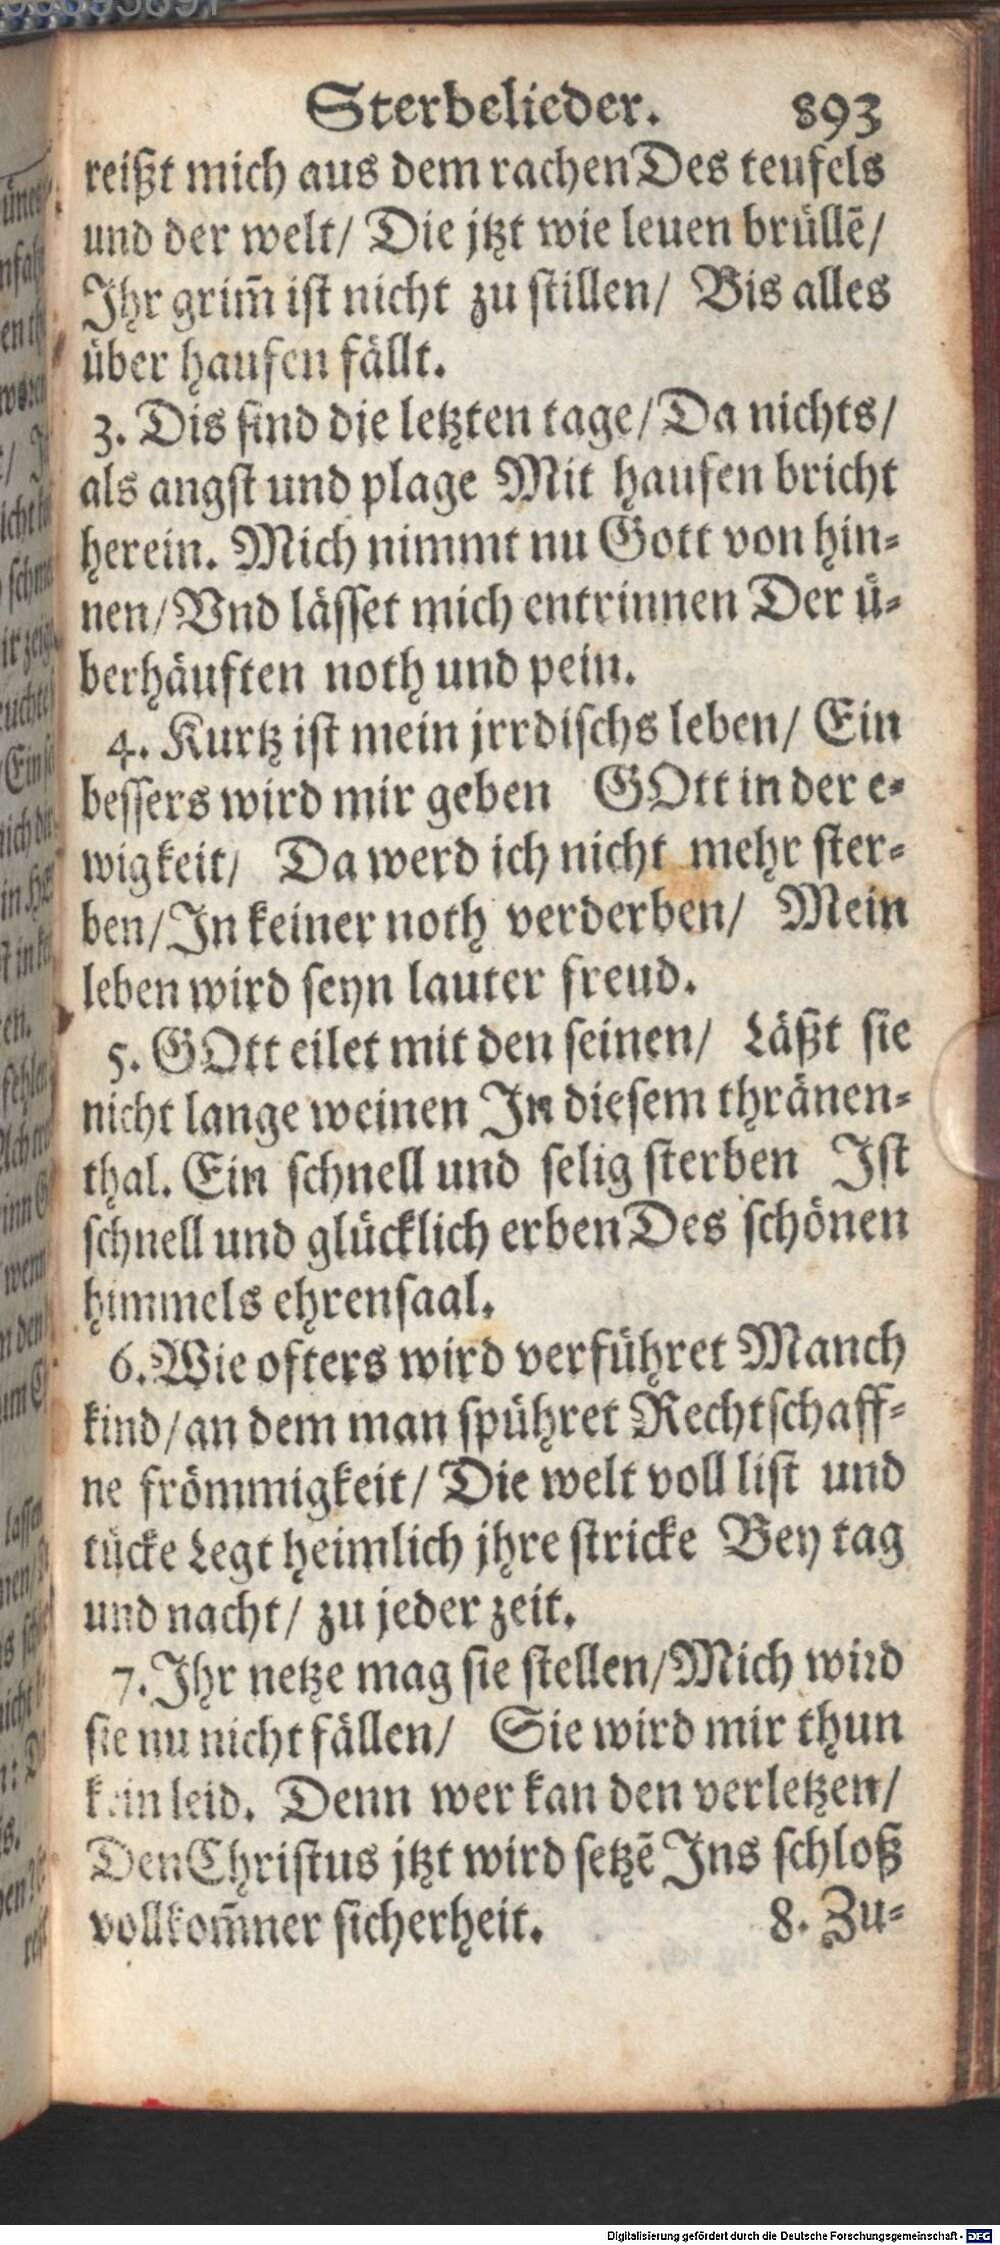 Sterbelieder. 893
reißt mich aus dem rachen Des teufels
und der welt/ Die jtzt wie leuen brüllē/
Ihr grim̄ ist nicht zu stillen/ Bis alles
über haufen fällt.
3. Dis sind die letzten tage/ Da nichts/
als angst und plage Mit haufen bricht
herein. Mich nimmt nu Gott von hin-
nen/ Vnd lässet mich entrinnen Der ü-
berhäuften noth und pein.
4. Kurtz ist mein jrrdischs leben/ Ein
bessers wird mir geben GOtt in der e-
wigkeit/ Da werd ich nicht mehr ster-
ben/ In keiner noth verderben/ Mein
leben wird seyn lauter freud.
5. GOtt eilet mit den seinen/ Läßt sie
nicht lange weinen In diesem thränen-
thal. Ein schnell und selig sterben Ist
schnell und glücklich erben Des schönen
himmels ehrensaal.
6. Wie ofters wird verführet Manch
kind/ an dem man spühret Rechtschaff-
ne frömmigkeit/ Die welt voll list und
tücke Legt heimlich jhre stricke Bey tag
und nacht/ zu jeder zeit.
7. Ihr netze mag sie stellen/ Mich wird
sie nu nicht fällen/ Sie wird mir thun
kein leid. Denn wer kan den verletzen/
Den Christus jtzt wird setzē Ins schloß
vollkom̄ner sicherheit. 8. Zu-
Digitalisierung gefördert durch die Deutsche Forschungsgemeinschaft - DFG